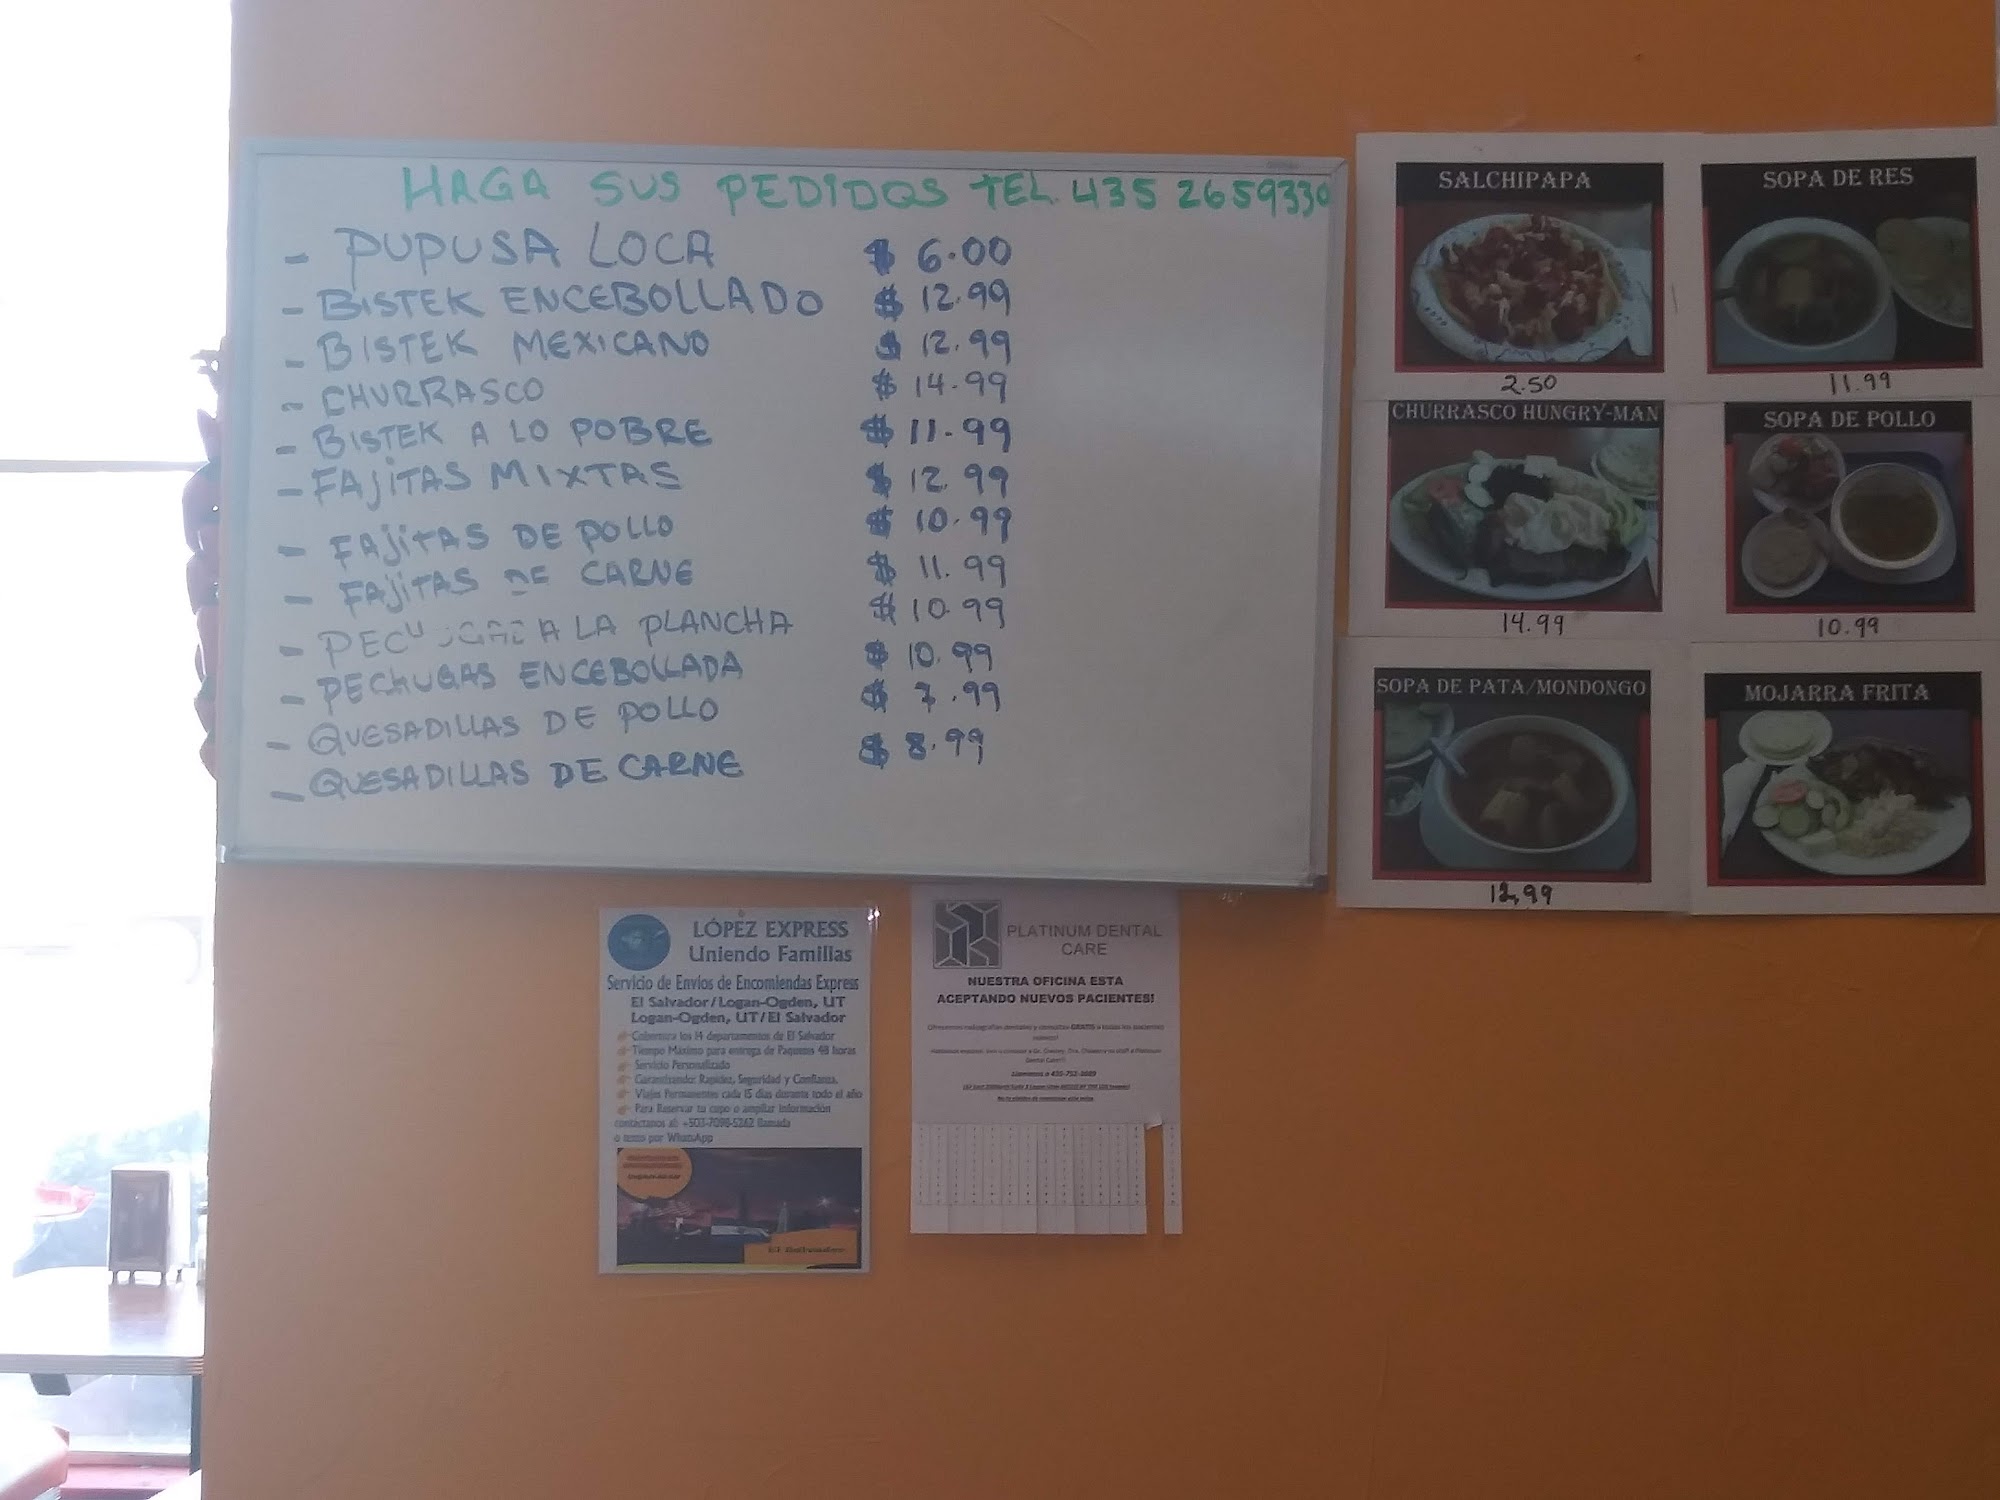 HAGA SUS PEDIDOS TEL. 435 2659330
- PUPUSA LOCA $ 6.00
- BISTEK ENCEBOLLADO $ 12.99
- BISTEK MEXICANO $ 12.99
- CHURRASCO $ 14.99
- BISTEK A LO POBRE $ 11.99
- FAJITAS MIXTAS $ 12.99
- FAJITAS DE POLLO $ 10.99
- FAJITAS DE CARNE $ 11.99
- A LA PLANCHA $ 10.99
- PECHUGAS ENCEBOLLADA $ 10.99
- QUESADILLAS DE POLLO $ 7.99
- QUESADILLAS DE CARNE $ 8.99
SALCHIPAPA
2.50
SOPA DE RES
11.99
CHURRASCO HUNGRY-MAN
14.99
SOPA DE POLLO
10.99
SOPA DE PATA/MONDONGO
12.99
MOJARRA FRITA
LÓPEZ EXPRESS
Uniendo Familias
Servicio de Envios de Encomiendas Express
El Salvador/Logan-Ogden, UT
Logan-Ogden, UT/El Salvador
Cobertura los 14 departamentos de El Salvador
Tiempo Máximo para entrega de Paquetes 48 horas
Servicio Personalizado
Garantizando: Rapidez, Seguridad y Confianza.
Viajes Permanentes cada 15 dias durante todo el año
Para Reservar tu cupo o ampliar información
contáctanos al: +503-7098-5262 llamada
o texto por WhatsApp
PLATINUM DENTAL
CARE
NUESTRA OFICINA ESTA
ACEPTANDO NUEVOS PACIENTES!